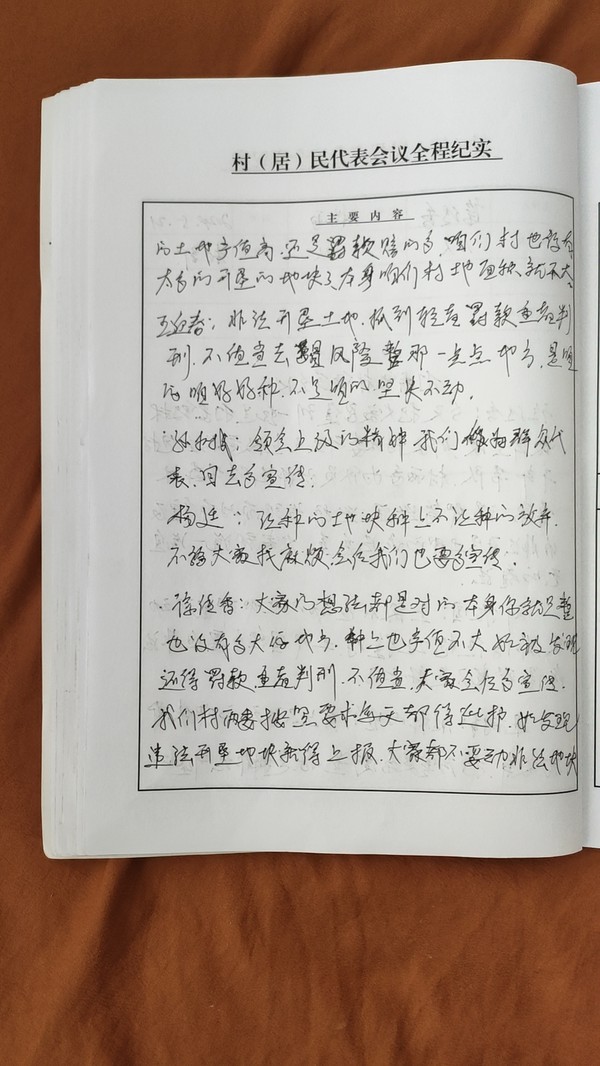 村（居）民代表会议全程纪实
主要内容
的土地产值高还是罚款赔的多,咱们村也没有
太多的开垦的地块了本身咱们村土地面积就不大。
王迎春：非法开垦土地.抓到轻者罚款重者判
刑.不值当去冒风险整那一点点地方,是咱
的咱好好种.不是咱的.坚决不动.
：领会上级的精神我们做为群众代
表.回去多宣传.
杨廷：该种的地块种上不该种的放弃.
不给大家找麻烦.会后我们也要多宣传.
徐传香：大家的想法都是对的本身你就是整
也没有多大好地方.种上也产值不大如被发现
还得罚款.重者判刑.不值当.大家会后多宣传.
我们村两委按照要求每天都得巡护.如发现
违法开垦地块就得上报.大家都不要动非法地块